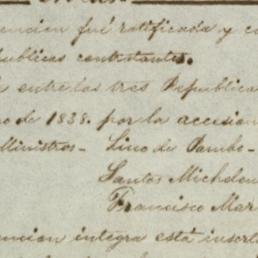 encion fué ratificada y c
publicas contratantes.
entre las tres Republica
o de 1838. por la accesion
Ministros- Lino de Pombo-
Santos Michelen
Francisco Mar
encion integra está insert